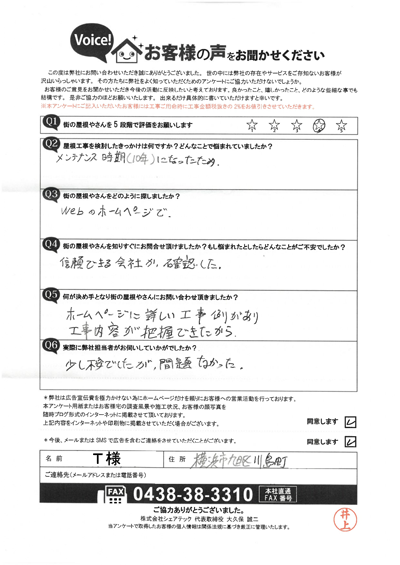 Voice!
お客様の声をお聞かせください
この度は弊社にお問い合わせいただき誠にありがとうございました。世の中には弊社の存在やサービスをご存知ないお客様が
沢山いらっしゃいます。その方たちに弊社をよく知っていただくためのアンケートにご協力いただけないでしょうか。
お客様のご意見をお聞かせいただき今後の活動に反映したいと考えております。良かったこと、嬉しかったこと、どのような些細な事でも
結構です。是非ご協力のほどお願いいたします。出来るだけ具体的に書いていただけますと幸いです。
※本アンケートにご記入いただいたお客様には工事ご成約時に工事金額総抜きの2%をお値引きさせていただきます。
Q1 街の屋根やさんを5段階で評価をお願いします
Q2 屋根工事を検討したきっかけは何ですか?どんなことで悩まれていましたか?
メンテナンス時期(10年)になったため。
Q3 街の屋根やさんをどのように探しましたか?
Webのホームページで。
Q4 街の屋根やさんを知りすぐにお問合せ頂けましたか?もし悩まれたとしたらどんなことがご不安でしたか?
信頼できる会社か、確認した。
Q5 何が決め手となり街の屋根やさんにお問い合わせ頂きましたか?
ホームページに詳しい工事例があり
工事内容が把握できたから。
Q6 実際に弊社担当者がお伺いしていかがでしたか?
少し不安でしたが、問題なかった。
*弊社は広告宣伝費を極力かけない為にホームページだけを頼りにお客様への営業活動を行っております。
本アンケート用紙またはお客様宅の調査風景や施工状況、お客様の顔写真を
随時ブログ形式のインターネットに掲載させて頂いております。
上記内容をインターネットや印刷物に掲載させていただく場合がございます。
同意します
*今後、メールまたはSMSで広告を含むご連絡をさせていただくことがございます。
同意します
名前 T様 住所 横浜市旭区川島町
ご連絡先(メールアドレスまたは電話番号)
FAX 0438-38-3310 本社直通 FAX番号
ご協力ありがとうございました。
株式会社シェアテック 代表取締役 大久保 誠二
※アンケートで取得したお客様の個人情報は関係法規に基づき厳正に管理いたします。
井上